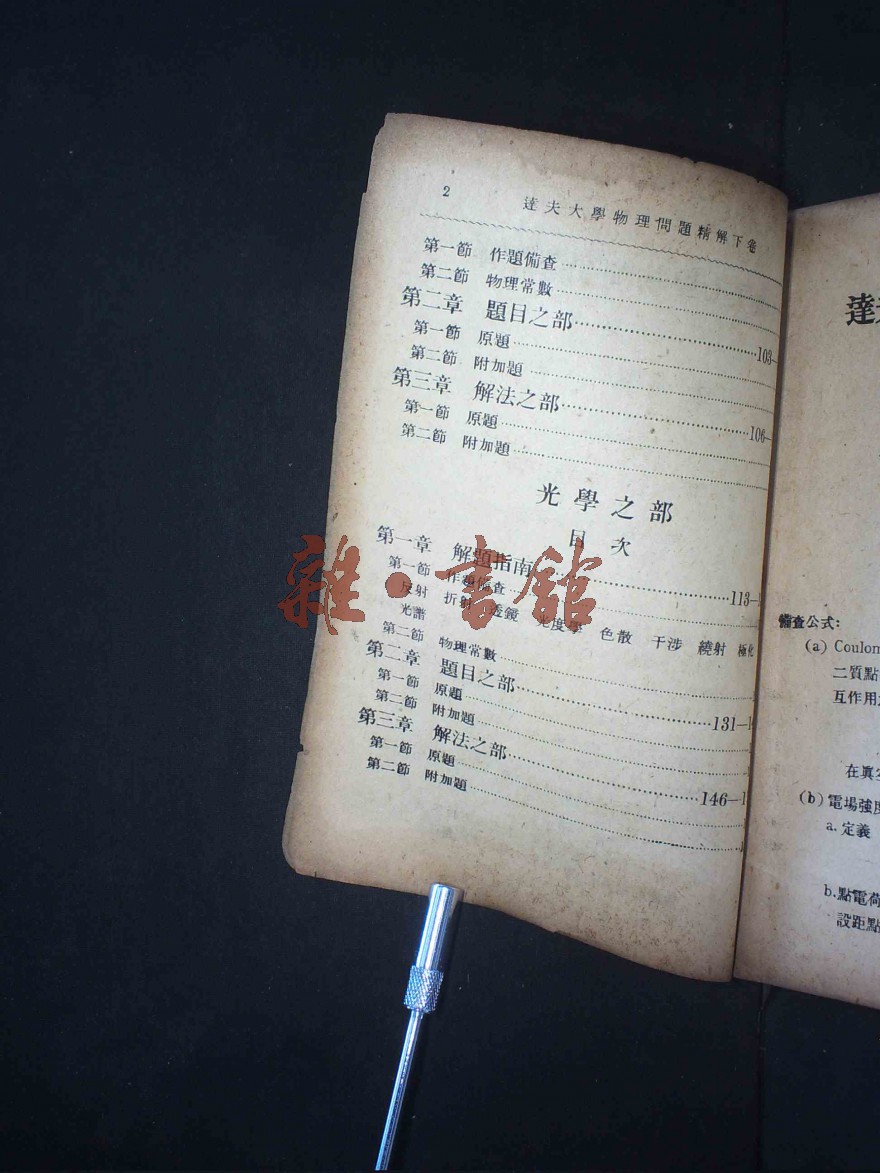 2 達夫大學物理問題精解下卷
第一節 作題備查
第二節 物理常數
第二章 題目之部 103-
第一節 原題
第二節 附加題
第三章 解法之部 106-
第一節 原題
第二節 附加題
光學之部
目次
第一章 解題指南 113-
第一節 作題備查
反射 折射 透鏡 光度學 色散 干涉 繞射 極化
光譜
第二節 物理常數
第二章 題目之部 131-
第一節 原題
第二節 附加題
第三章 解法之部 146-1
第一節 原題
第二節 附加題
雜·書館
達
備查公式:
(a) Coulom
二質點
互作用
在眞空
(b) 電場強度
a. 定義
b. 點電荷
設距點